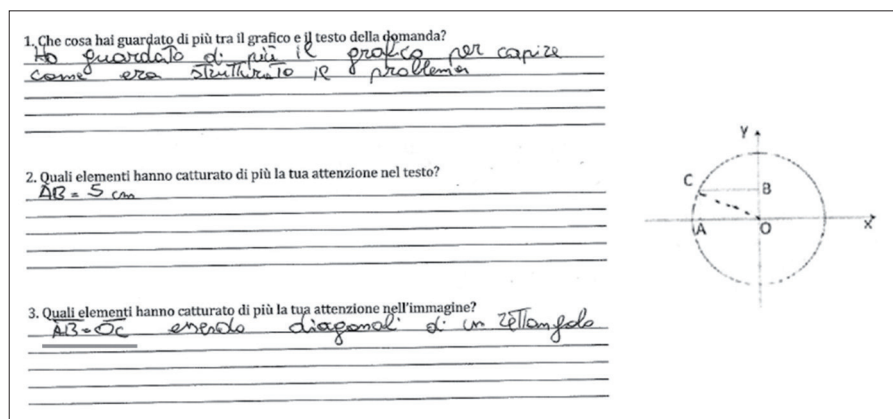 1. Che cosa hai guardato di più tra il grafico e il testo della domanda?
Ho guardato di più il grafico per capire
come era strutturato il problema
2. Quali elementi hanno catturato di più la tua attenzione nel testo?
AB = 5 cm
3. Quali elementi hanno catturato di più la tua attenzione nell'immagine?
AB = OC essendo diagonali di un rettangolo
Y
C
B
A
O
X